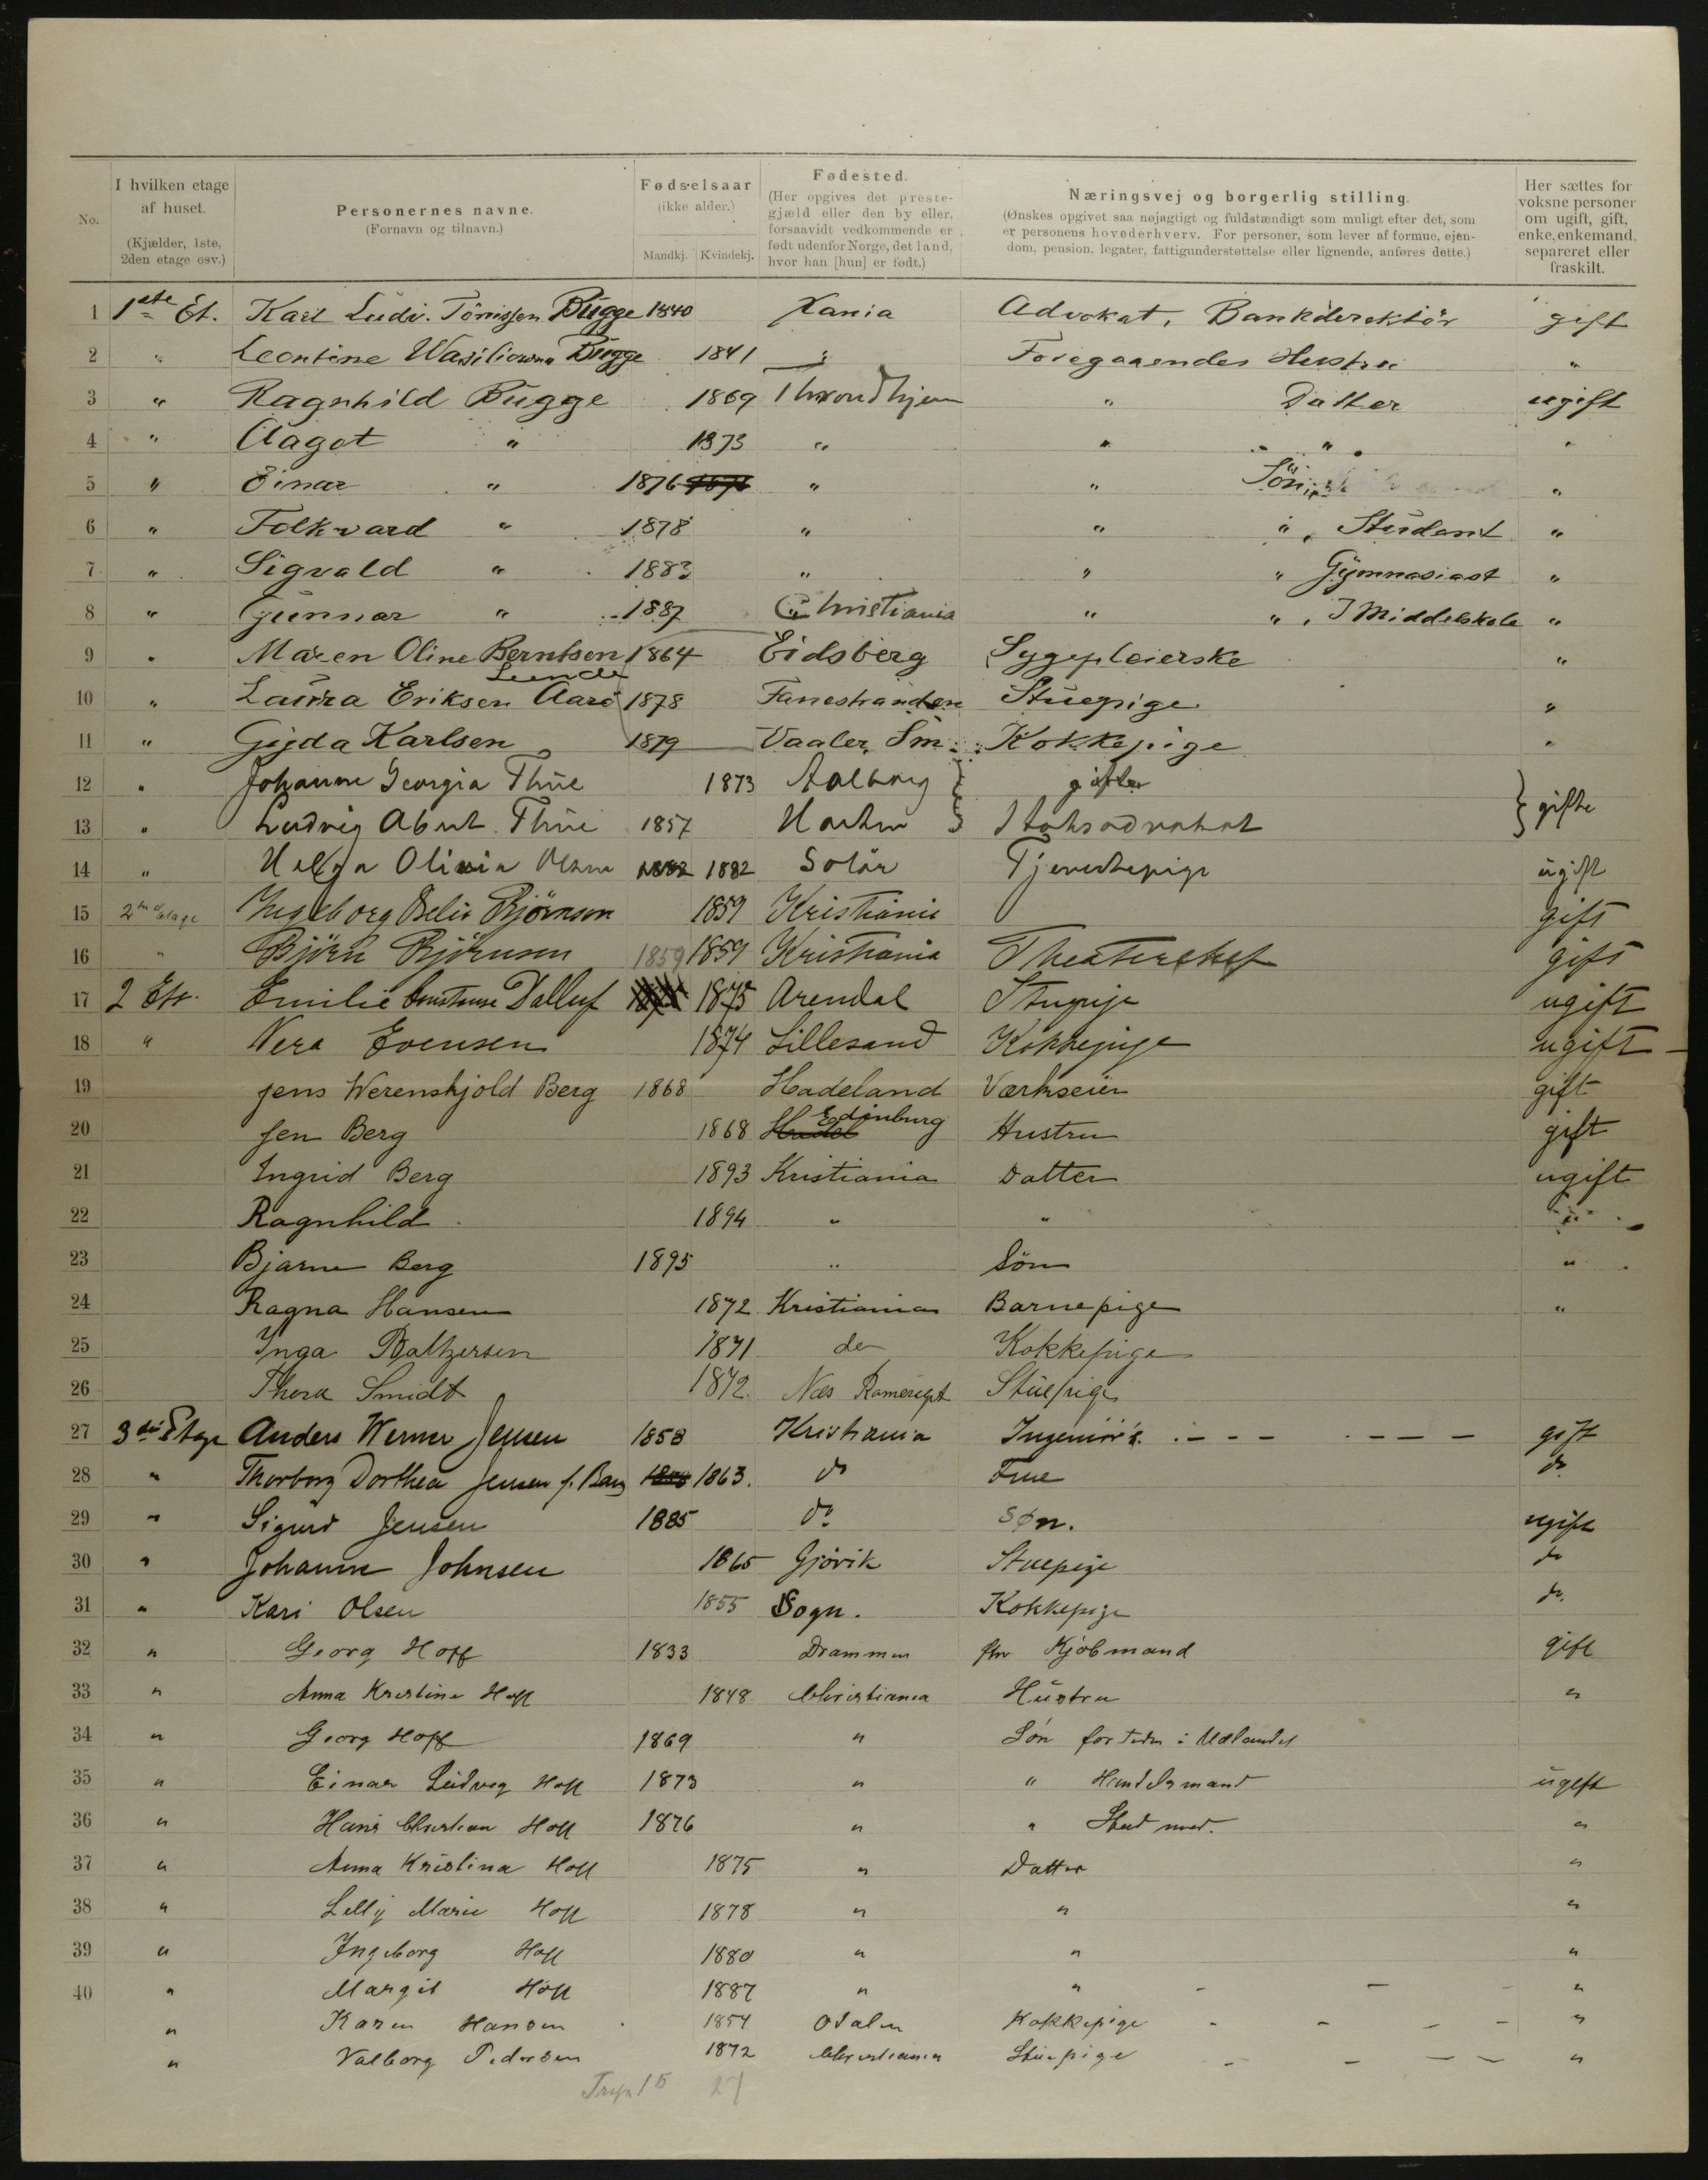 No.
I hvilken etage af huset.
(Kjælder, 1ste, 2den etage osv.)
Personernes navne.
(Fornavn og tilnavn.)
Fødselsaar
(ikke alder.)
Mandkj. Kvindekj.
Fødested.
(Her opgives det prestegjæld eller den by eller, forsaavidt vedkommende er født udenfor Norge, det land, hvor han [hun] er født.)
Næringsvej og borgerlig stilling.
(Ønskes opgivet saa nøjagtigt og fuldstændigt som muligt efter det, som er personens hovederhverv. For personer, som lever af formue, ejendom, pension, legater, fattigunderstøttelse eller lignende, anføres dette.)
Her sættes for voksne personer om ugift, gift, enke, enkemand, separeret eller fraskilt.
1 1ste Et. Karl Ludv. Tönissen Bugge 1840 Xania Advokat, Bankdirektör gift
2 " Leontine Wasiliowna Bugge 1841 " Foregaaendes Hustru "
3 " Ragnhild Bugge 1869 Throndhjem " Datter ugift
4 " Aagot " 1873 " " " "
5 " Einar " 1876 1876 " " Sön "
6 " Folkvard " 1878 " " " , Student "
7 " Sigvald " 1883 " " " Gymnasiast "
8 " Gunnar " 1887 Christiania " " , I Middelskole "
9 " Maren Oline Berntsen 1864 Eidsberg Sygepleierske "
Lunde
10 " Laura Eriksen Aarö 1878 Fanestranden Stuepige "
11 " Gyda Karlsen 1879 Vaaler Sm. Kokkepige "
12 " Johanne Georgia Thüe 1873 Aalborg } gifte }
13 " Ludvig Thüe 1857 Horten } } gifte
14 " Helga Olivia Olsen 1882 1882 Solör Tjenestepige ugift
15 2den etage Ingeborg Björnson 1859 Kristiania gift
16 " Björn Björnson 1859 1859 Kristiania Theaterchef gift
17 2 Et. Emilie 1875 Arendal Stuepige ugift
18 " Nera Evensen 1874 Lillesand Kokkepige ugift
19 Jens Werenskjold Berg 1868 Hadeland Værkseier gift
20 Jen Berg 1868 Hadel Edinburg Hustru gift
21 Ingrid Berg 1893 Kristiania Datter ugift
22 Ragnhild 1894 " " "
23 Bjarne Berg 1895 " Sön "
24 Ragna Hansen 1872 Kristiania Barnepige "
25 Inga Baltzersen 1871 do Kokkepige
26 Thora Smidt 1872 Nes Romerige Stuepige
27 3die Etage Anders Werner Jensen 1858 Kristiania Ingeniör gift
28 " Thorborg Dorthea Jensen f. Bang 1863. do Frue do
29 " Sigurd Jensen 1885 do Søn. ugift
30 " Johanne Johnsen 1865 Gjövik Stuepige do
31 " Kari Olsen 1855 Sogn. Kokkepige do
32 " Georg Hoff 1833 Drammen fhv Kjöbmand gift
33 " Anna Kristine Hoff 1848 Christiania Hustru "
34 " Georg Hoff 1869 " Sön for Tiden i Udlandet
35 " Einar Ludvig Hoff 1873 " " Handelsmand ugift
36 " Hans Christian Hoff 1876 " " Stud med. "
37 " Anna Kristina Hoff 1875 " Datter "
38 " Lilly Marie Hoff 1878 " " "
39 " Ingeborg Hoff 1880 " " "
40 " Margit Hoff 1887 " " "
" Karen Hansen 1854 Odalen Kokkepige "
" Valborg Pedersen 1872 Christiania Stuepige "
15 27